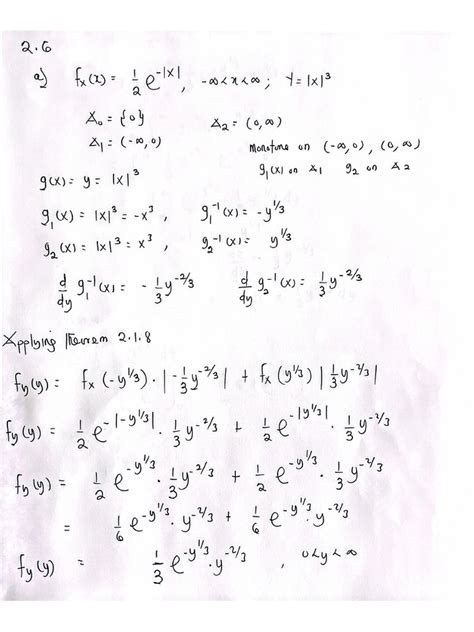 2.6
a) fx(x) = 1/2 e^-|x|, -∞<x<∞; Y=|x|^3
A₀ = {0} A₂ = (0,∞)
A₁ = (-∞,0) monotone on (-∞,0), (0,∞)
g₁(x) on A₁ g₂ on A₂
g(x) = y = |x|^3
g₁(x) = |x|^3 = -x^3, g₁^-1(x) = -y^1/3
g₂(x) = |x|^3 = x^3, g₂^-1(x) = y^1/3
d/dy g₁^-1(x) = -1/3 y^-2/3 d/dy g₂^-1(x) = 1/3 y^-2/3
Applying Theorem 2.1.8
fy(y) = fx(-y^1/3) · |-1/3 y^-2/3| + fx(y^1/3) |1/3 y^-2/3|
fy(y) = 1/2 e^-|-y^1/3| · 1/3 y^-2/3 + 1/2 e^-|y^1/3| · 1/3 y^-2/3
fy(y) = 1/2 e^-y^1/3 · 1/3 y^-2/3 + 1/2 e^-y^1/3 · 1/3 y^-2/3
= 1/6 e^-y^1/3 · y^-2/3 + 1/6 e^-y^1/3 · y^-2/3
fy(y) = 1/3 e^-y^1/3 · y^-2/3, 0<y<∞